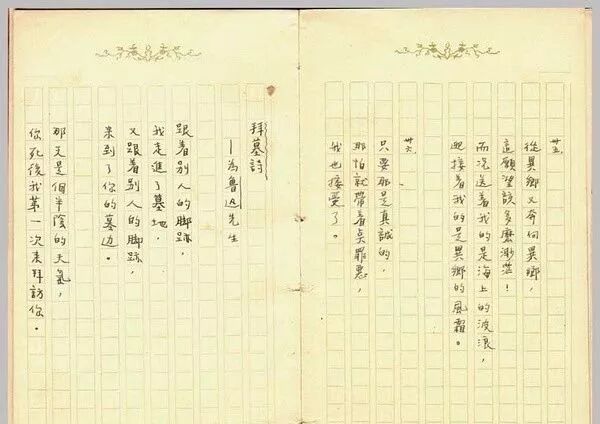 卅五
從異鄉又奔向異鄉，
這願望該多麼渺茫！
而況送着我的是海上的波浪，
迎接着我的是異鄉的風霜。
卅六
只要那是真誠的，
那怕就帶着奌罪惡，
我也接受了。
拜墓詩
—為魯迅先生
跟着别人的脚跡，
我走進了墓地，
又跟着别人的脚跡，
来到了你的墓边。
那天是個半陰的天氣，
你死後我第一次来拜訪你。